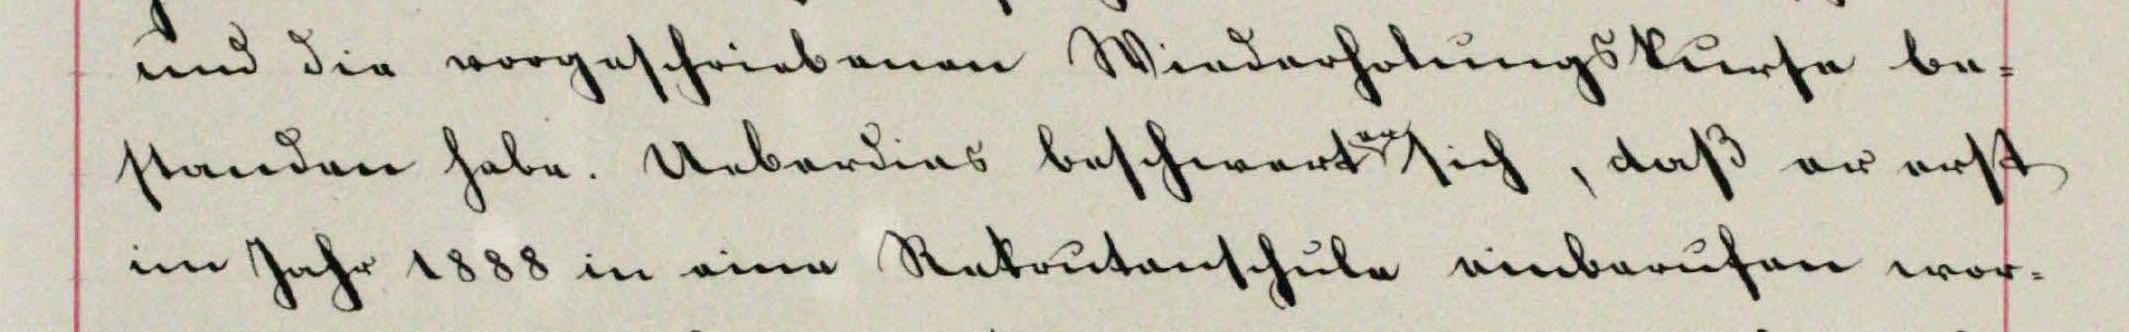 und die vorgeschriebenen Wiederholungskurse be-
standen habe. Ueberdies beschwert er sich, daß er erst
im Jahr 1888 in eine Rekrutenschule einberufen wor-